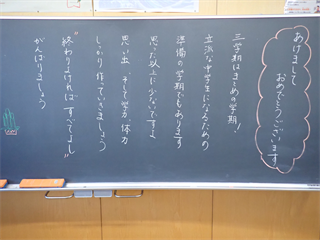 あけまして
おめでとうございます
三学期はまとめの学期!
立派な中学生になるための
準備の学期でもあります
思った以上に少ないですよ
思い出、そして学力、体力
しっかり作っていきましょう
"終わりよければすべてよし"
がんばりましょう